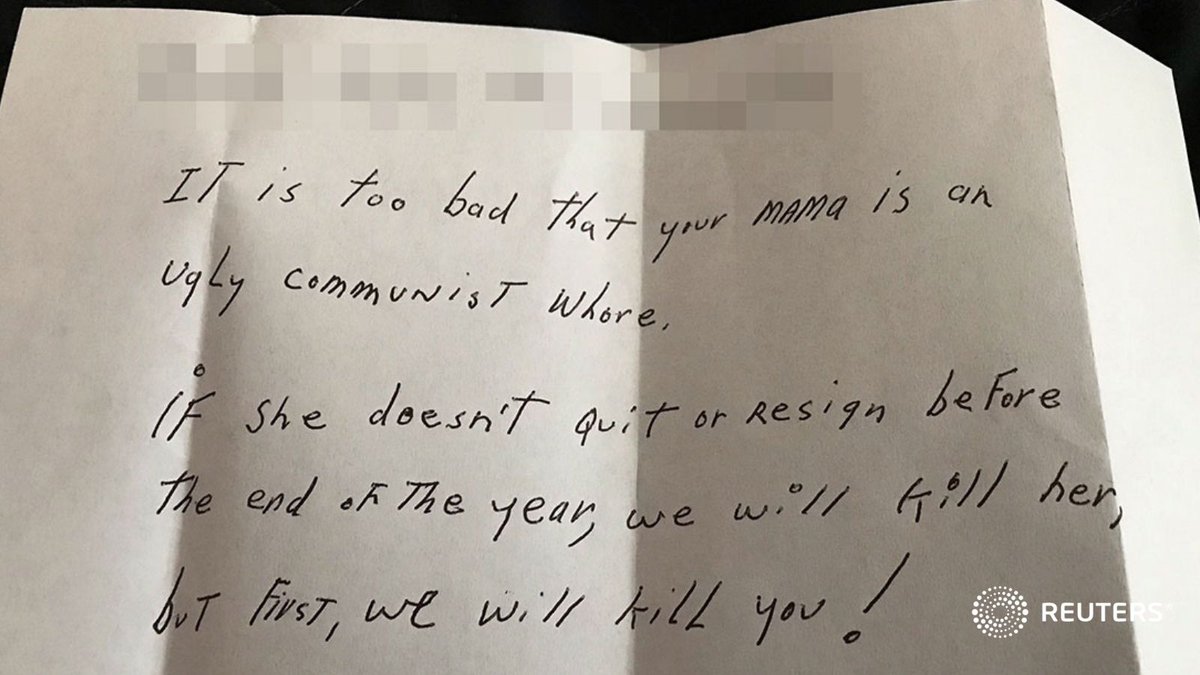 IT is too bad that your MAMA is an
ugly communist whore.
if she doesn't quit or resign before
the end of the year, we will kill her,
but first, we will kill you!
REUTERS